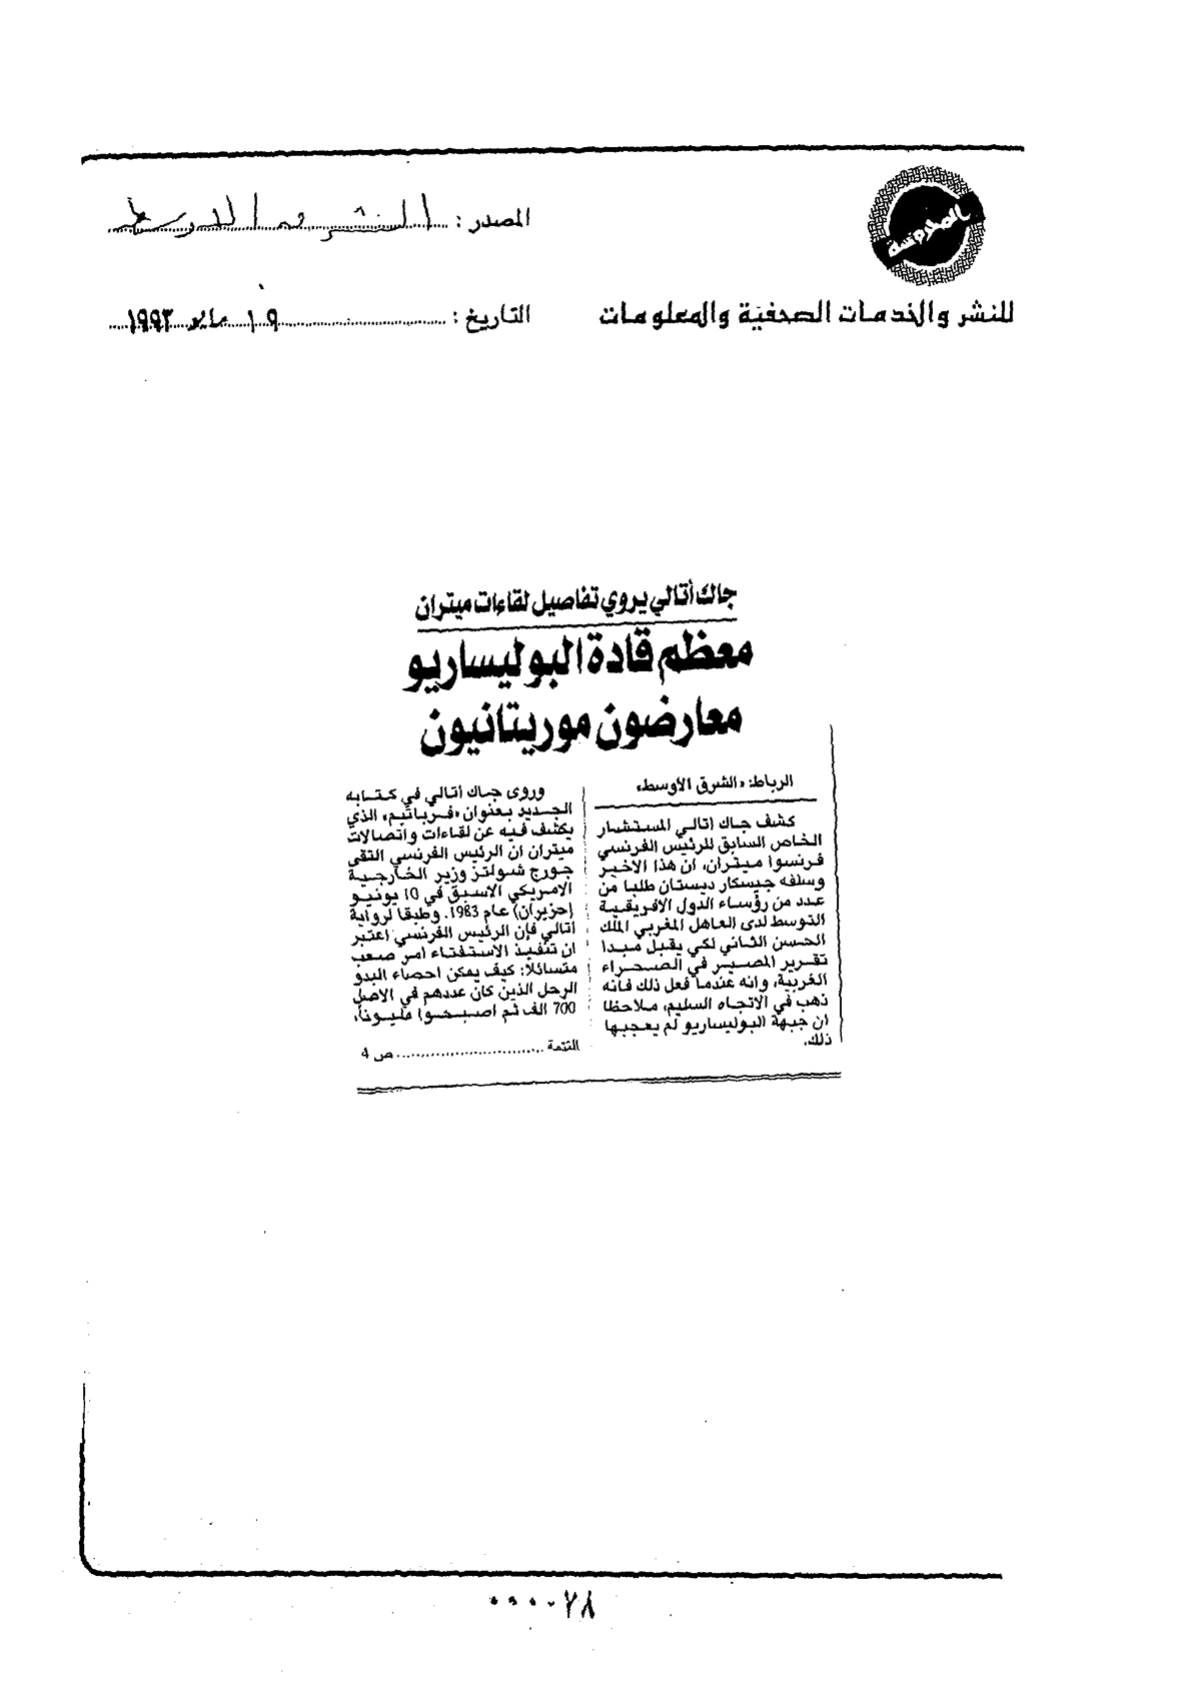 المصدر : الشرق الاوسط
التاريخ : ١٩ مايو ١٩٩٣
للنشر والخدمات الصحفية والمعلومات
جاك أتالي يروي تفاصيل لقاءات ميتران
معظم قادة البوليساريو
معارضون موريتانيون
الرباط: «الشرق الأوسط»
كشف جاك اتالي المستشار
الخاص السابق للرئيس الفرنسي
فرنسوا ميتران، ان هذا الاخير
وسلفه جيسكار ديستان طلبا من
عدد من رؤساء الدول الافريقية
التوسط لدى العاهل المغربي الملك
الحسن الثاني لكي يقبل مبدا
تقرير المصير في الصحراء
الغربية، وانه عندما فعل ذلك فانه
ذهب في الاتجاه السليم، ملاحظا
ان جبهة البوليساريو لم يعجبها
ذلك.
وروى جاك أتالي في كتابه
الجديد بعنوان «فرباتيم» الذي
يكشف فيه عن لقاءات واتصالات
ميتران ان الرئيس الفرنسي التقى
جورج شولتز وزير الخارجية
الامريكي الاسبق في 10 يونيو
(حزيران) عام 1983. وطبقا لرواية
أتالي فإن الرئيس الفرنسي اعتبر
ان تنفيذ الاستفتاء امر صعب
متسائلا: كيف يمكن احصاء البدو
الرحل الذين كان عددهم في الاصل
700 الف ثم اصبحوا مليونا،
التتمة .......................... ص 4
٠٠٠٠٧٨